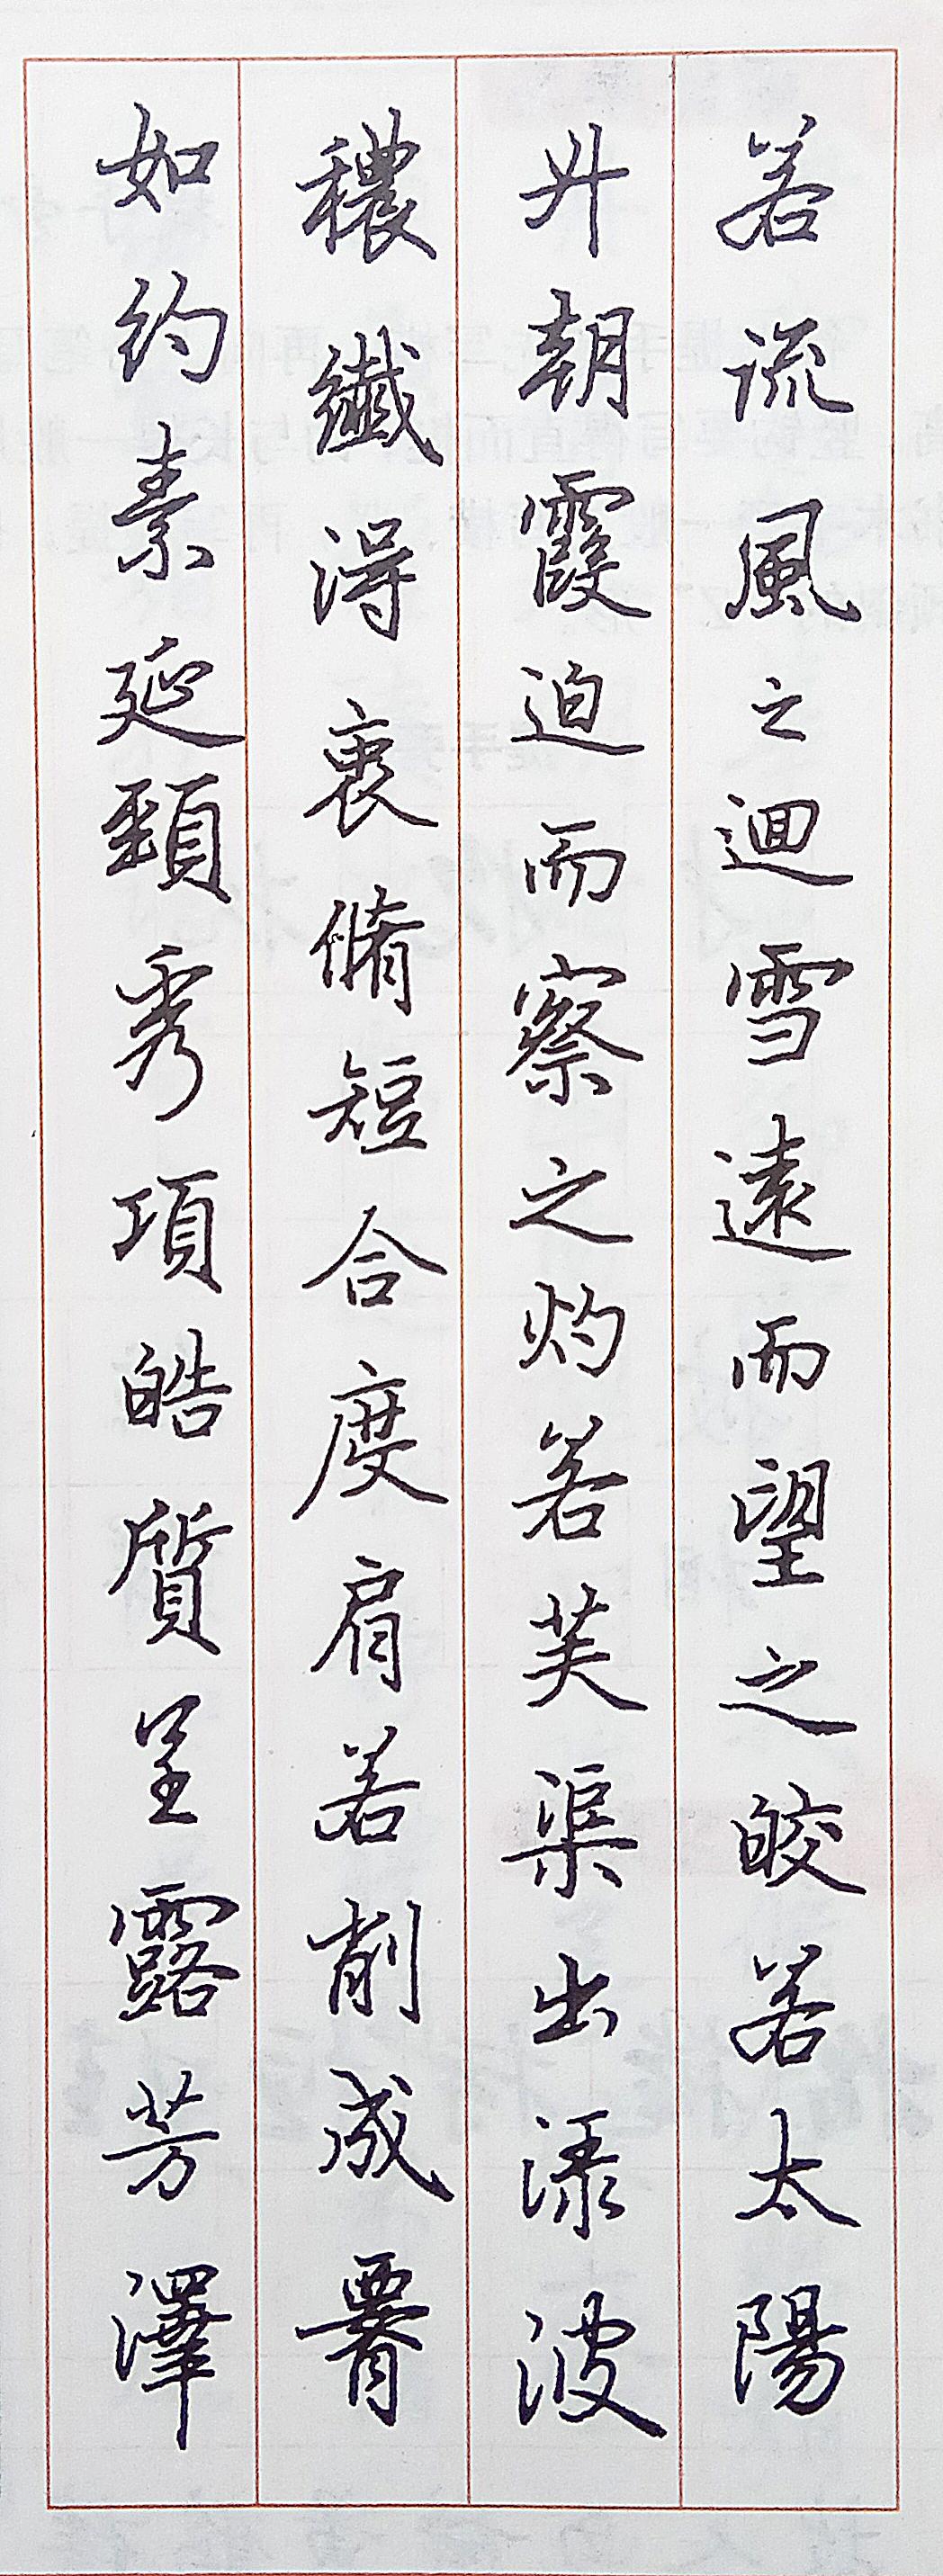 若流風之迴雪遠而望之皎若太陽
升朝霞迫而察之灼若芙渠出渌波
穠纖得衷脩短合度肩若削成署
如約素延頸秀項皓質呈露芳澤